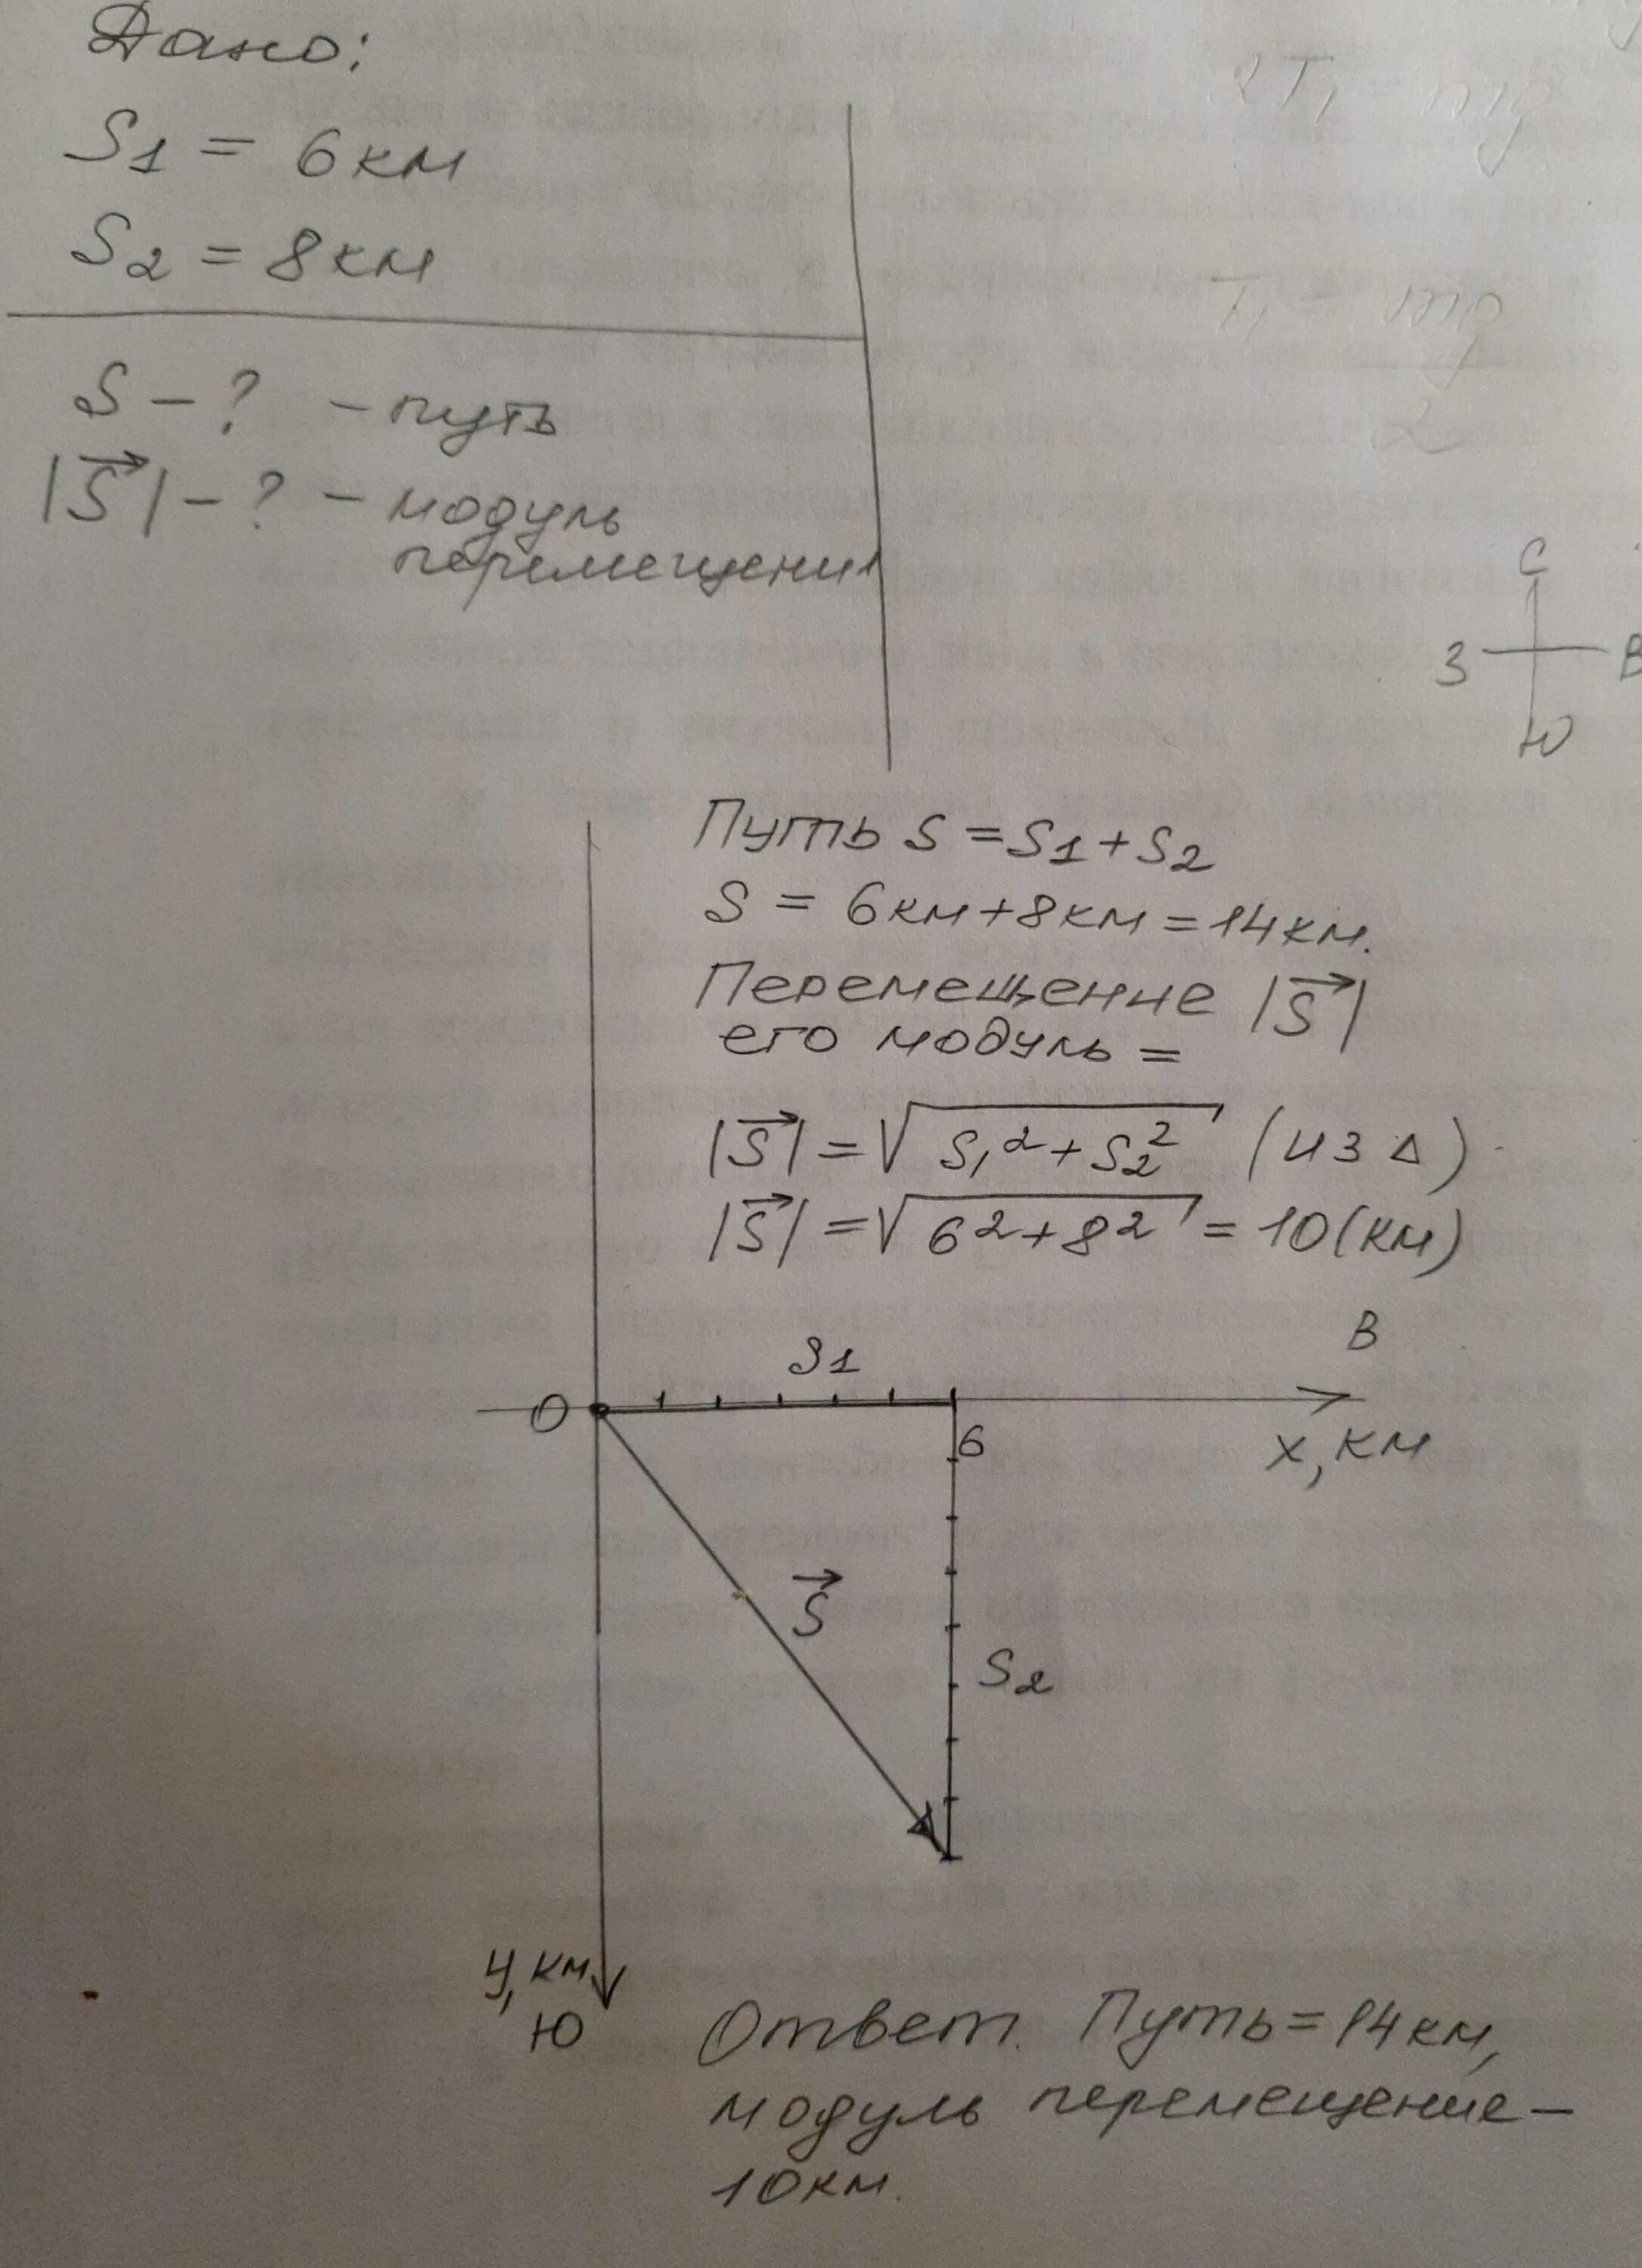 Дано:
S1 = 6 км
S2 = 8 км
S – ? – путь
|S⃗| – ? – модуль
перемещения
С
З В
Ю
Путь S = S1 + S2
S = 6 км + 8 км = 14 км.
Перемещение |S⃗|
его модуль =
|S⃗| = √(S1² + S2²) (из Δ)
|S⃗| = √(6² + 8²) = 10 (км)
В
S1
0
6
x, км
S⃗
S2
y, км
Ю
Ответ. Путь = 14 км,
модуль перемещение –
10 км.